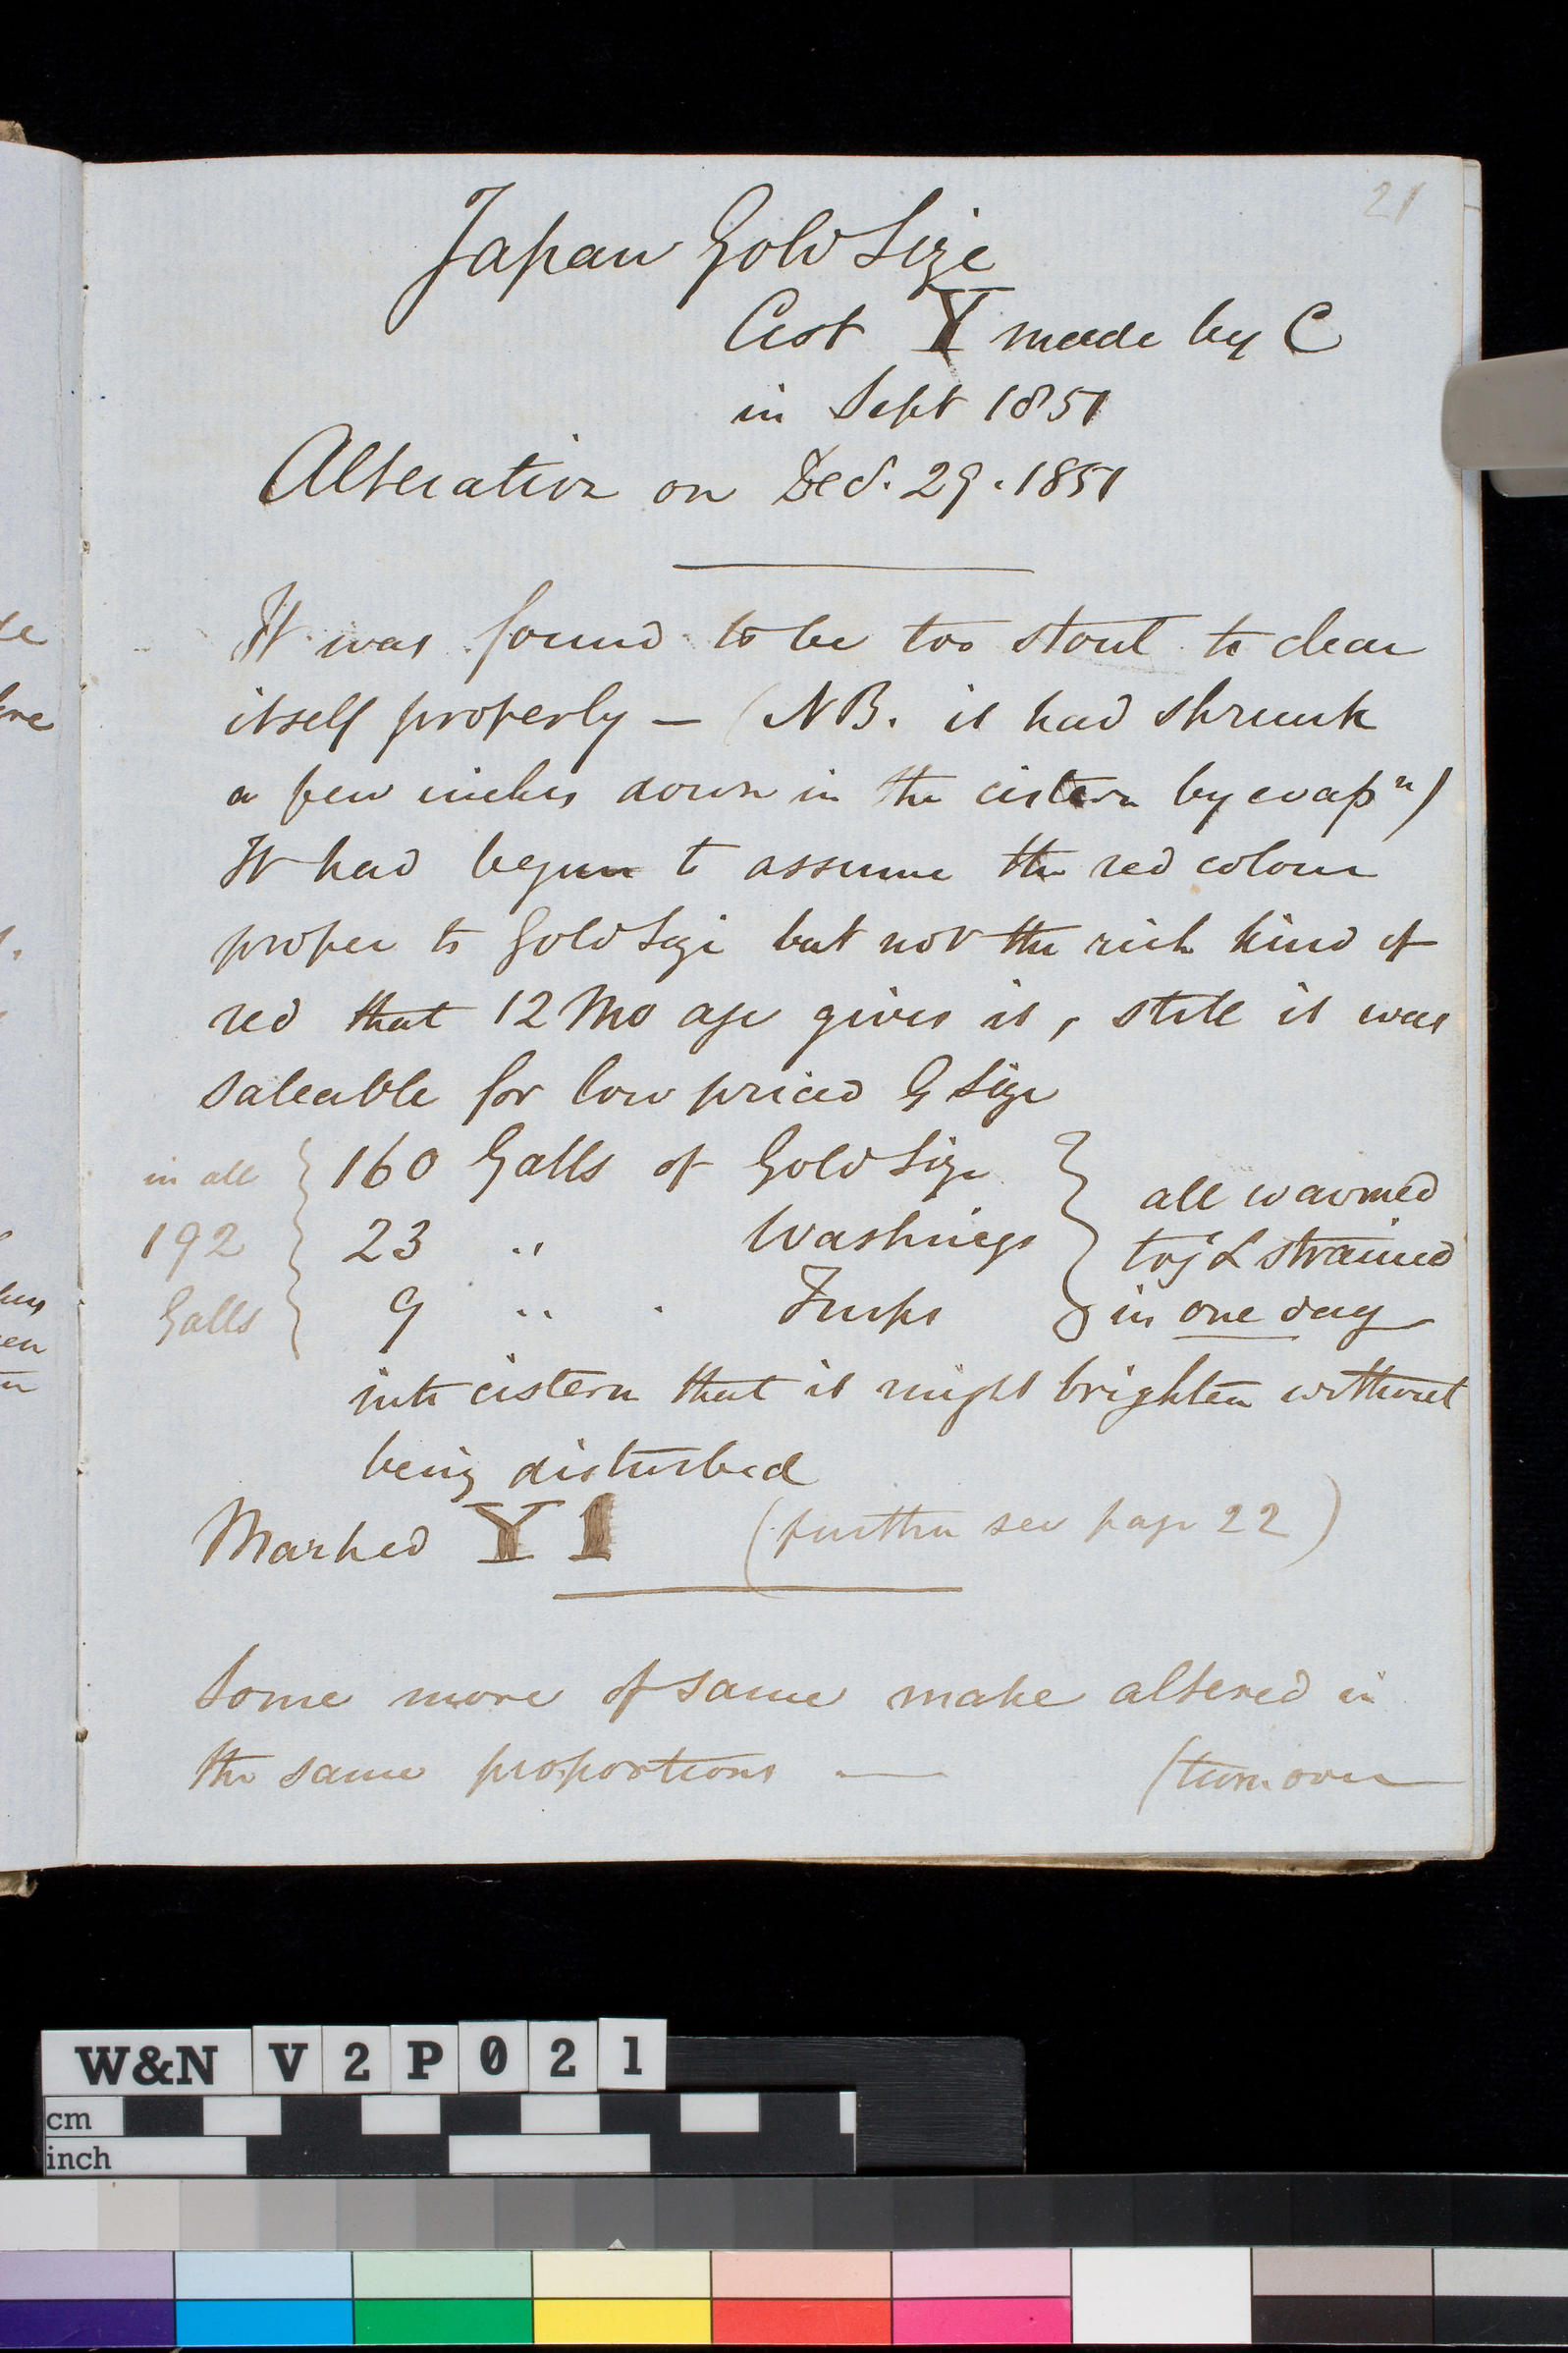 21
Japan Gold Size
Cist Y made by C
in Sept 1851
Alteration on Dec. 29. 1851
It was found to be too stout to clear
itself properly — (NB. it had shrunk
a few inches down in the cistern by evapn)
It had begun to assume the red colour
proper to Gold Size but not the rich kind of
red that 12 Mo age gives it, still it was
saleable for low priced G Size
in all 160 Galls of Gold Size all warmed
192 23 " Washings togr & strained
Galls 9 " " Turps in one day
into cistern that it might brighten without
being disturbed
Marked Y 1 (further see page 22)
Some more of same make altered in
the same proportions — (turn over
W&N V2P021
cm
inch